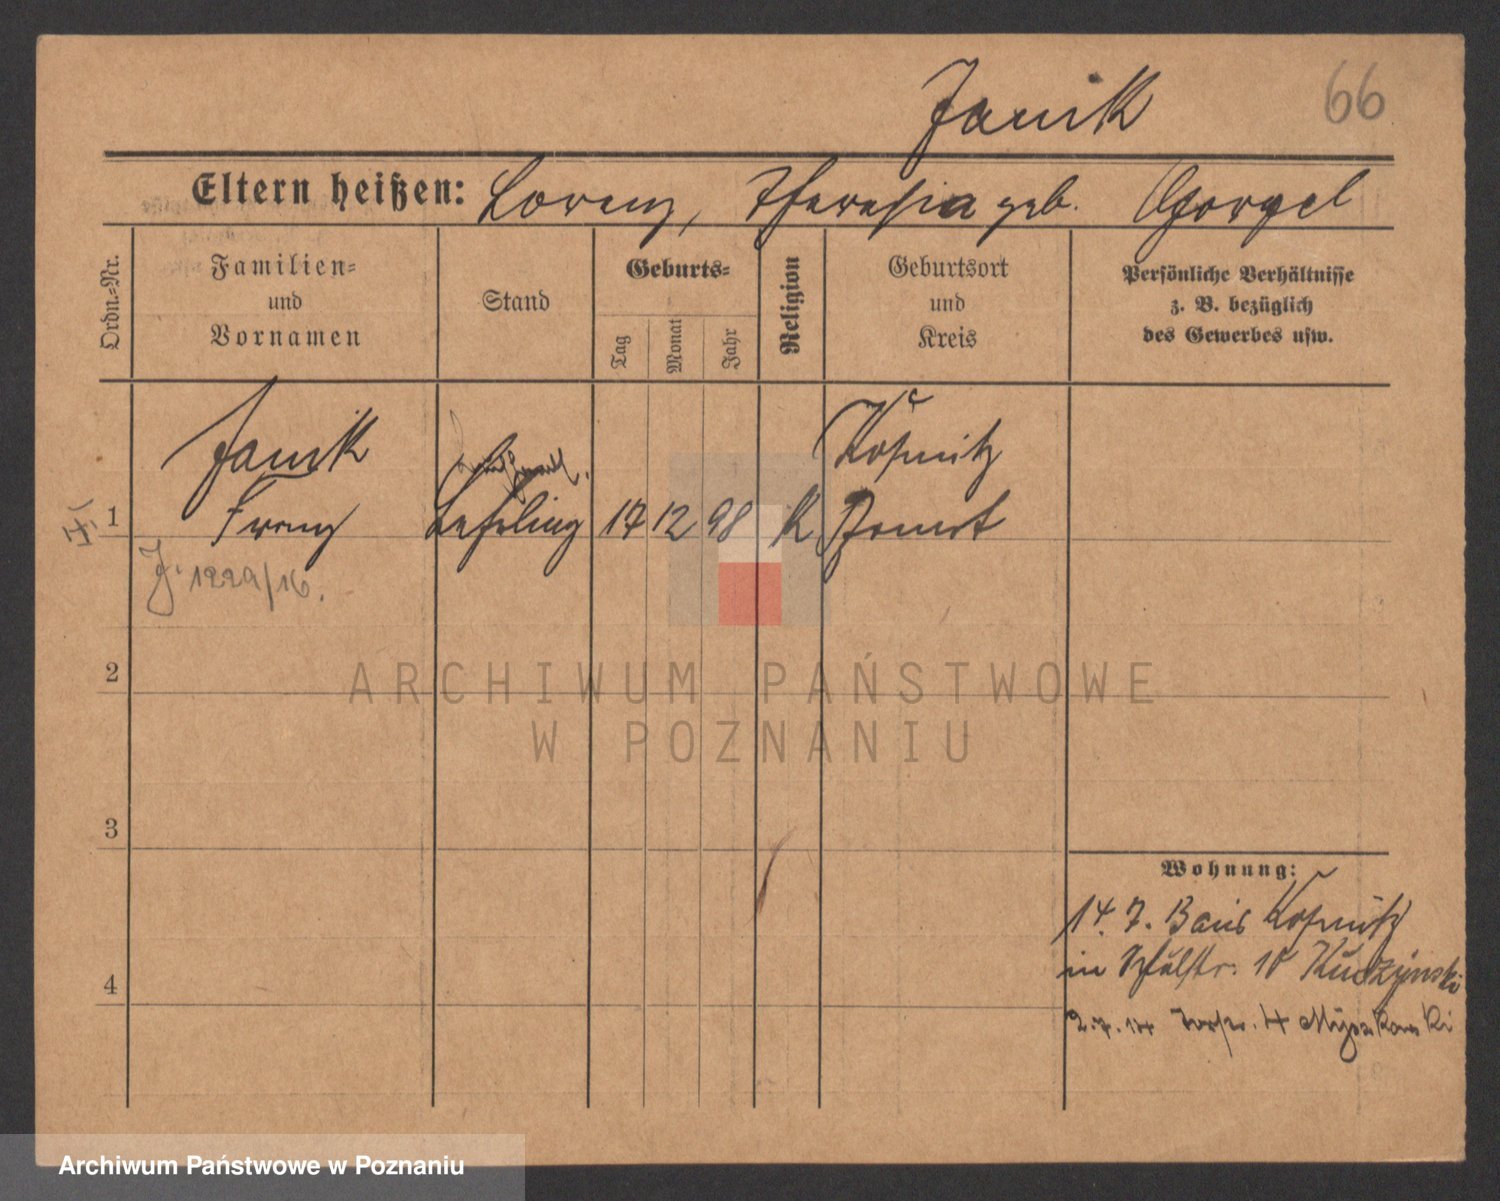 Janik
66
Eltern heißen: Lorenz, Theresia geb. Georgel
Ordn.=Nr.
Familien=
und
Vornamen
Stand
Geburts=
Tag
Monat
Jahr
Religion
Geburtsort
und
Kreis
Persönliche Verhältnisse
z. B. bezüglich
des Gewerbes usw.
Janik
Kopnitz
1 Franz Lehrling 17 12 98 K Bomst
J. 1229/16.
2
ARCHIWUM PAŃSTWOWE
W POZNANIU
3
Wohnung:
14. 7. Kopnitz
4
in Schulstr. 10 Kuczynski
2.7.14 4 Myszkowski
Archiwum Państwowe w Poznaniu